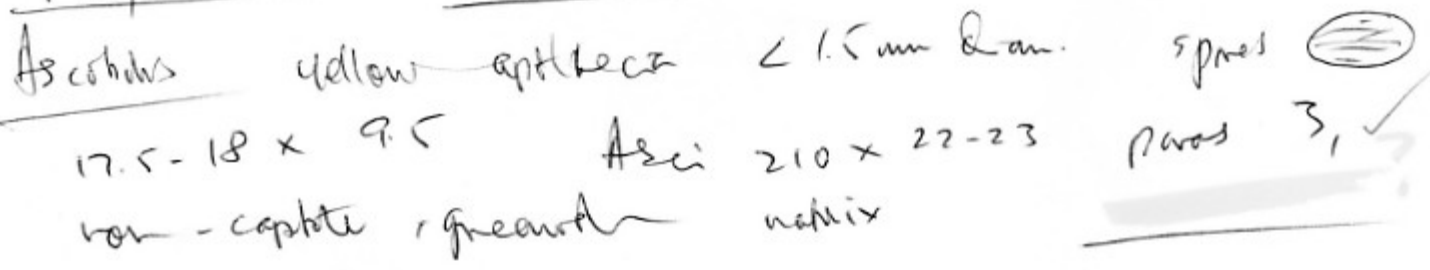 Ascobolus yellow apothecia < 1.5 mm diam. spores
17.5-18 x 9.5 Asci 210 x 22-23 paras 3,
non-capitate, greenish matrix